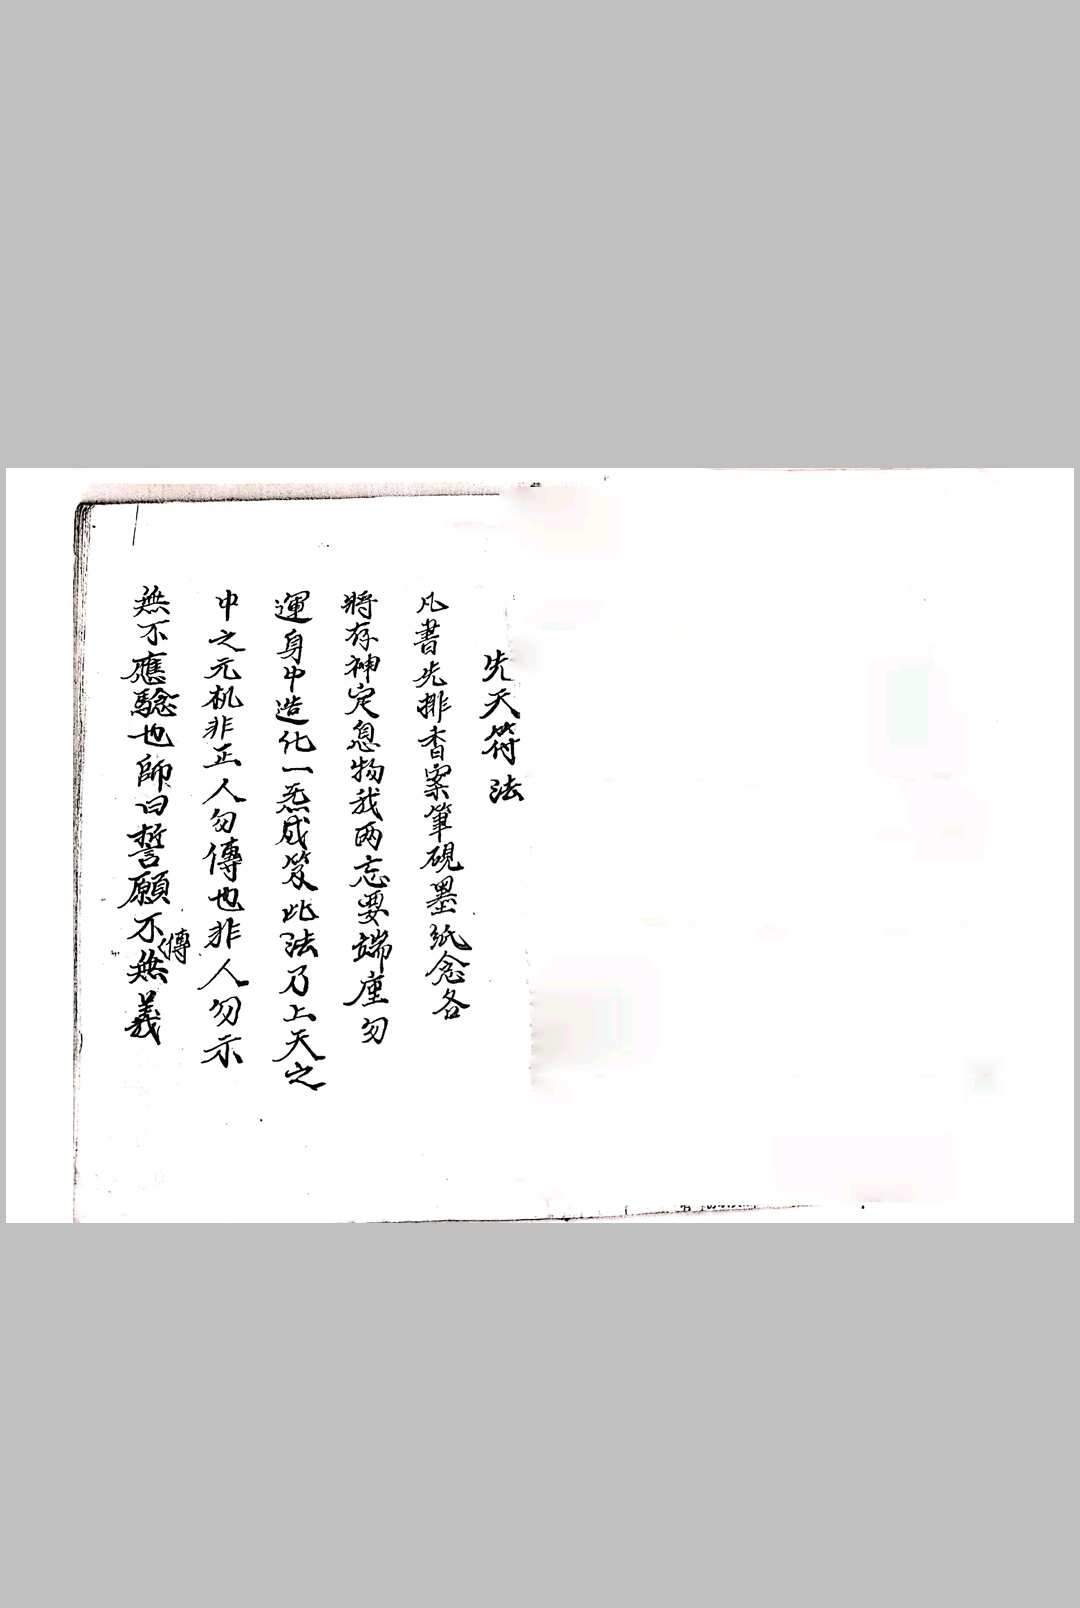 先天符法
凡書先排香案筆硯墨紙念各
將存神定息物我两忘要端座勿
運身中造化一炁成笈此法乃上天之
中之元机非正人勿傳也非人勿示
無不應騐也師曰誓願不傳無義